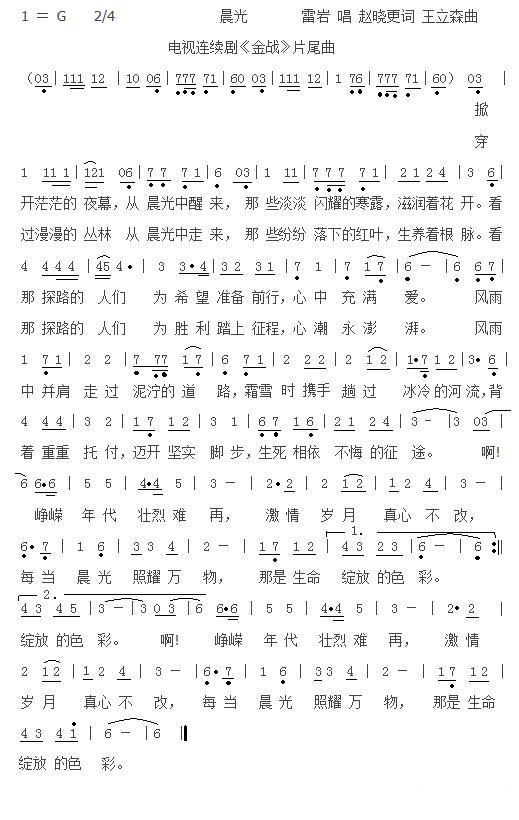 1 = G 2/4 晨光 雷岩 唱 赵晓更词 王立森曲
电视连续剧《金战》片尾曲
(03 | 111 12 | 10 06 | 777 71 | 60 03 | 111 12 | 1 76 | 777 71 | 60) 03 |
掀
穿
1 11 1 | 121 06 | 7 7 7 1 | 6 03 | 1 11 | 7 7 7 76 | 21 24 | 3 6 |
开茫茫的 夜幕,从 晨光中醒 来, 那 些淡淡 闪耀的寒露,滋润着花 开。看
过漫漫的 丛林 从 晨光中走 来, 那 些纷纷 落下的红叶,生养着根 脉。看
4 4 4 4 | 45 4• | 3 3•4 | 3 2 3 1 | 7 1 | 7 17 | 6 — | 6 67 |
那 探路的 人们 为 希 望 准备 前行,心 中 充 满 爱。 风雨
那 探路的 人们 为 胜 利 踏上 征程,心 潮 永 澎 湃。 风雨
1 7 1 | 2 2 | 7 77 17 | 6 71 | 2 22 | 2 12 | 1•7 12 | 3• 6 |
中 并肩 走 过 泥泞的 道 路,霜雪 时 携手 趟 过 冰冷 的河 流,背
4 44 | 3 2 | 17 12 | 3 1 | 67 16 | 21 24 | 3 — | 3 03 |
着 重重 托 付,迈开 坚实 脚 步,生死 相依 不悔 的征 途。 啊!
6 6•6 | 5 5 | 4•4 5 | 3 — | 2•2 | 2 12 | 12 4 | 3 — |
峥嵘 年 代 壮烈 难 再, 激 情 岁 月 真心 不 改,
6•7 | 1 6 | 33 4 | 2 — | 17 12 | 1. 43 23 | 6 — | 6 :||
每 当 晨 光 照耀 万 物, 那是 生命 绽放 的色 彩。
2. 43 45 | 3 — | 30 03 | 6 6•6 | 5 5 | 4•4 5 | 3 — | 2•2 |
绽放 的色 彩。 啊! 峥嵘 年 代 壮烈 难 再, 激 情
2 12 | 12 4 | 3 — | 6•7 | 1 6 | 33 4 | 2 — | 17 12 |
岁 月 真心 不 改, 每 当 晨 光 照耀 万 物, 那是 生命
43 41 | 6 — | 6 ‖
绽放 的色 彩。